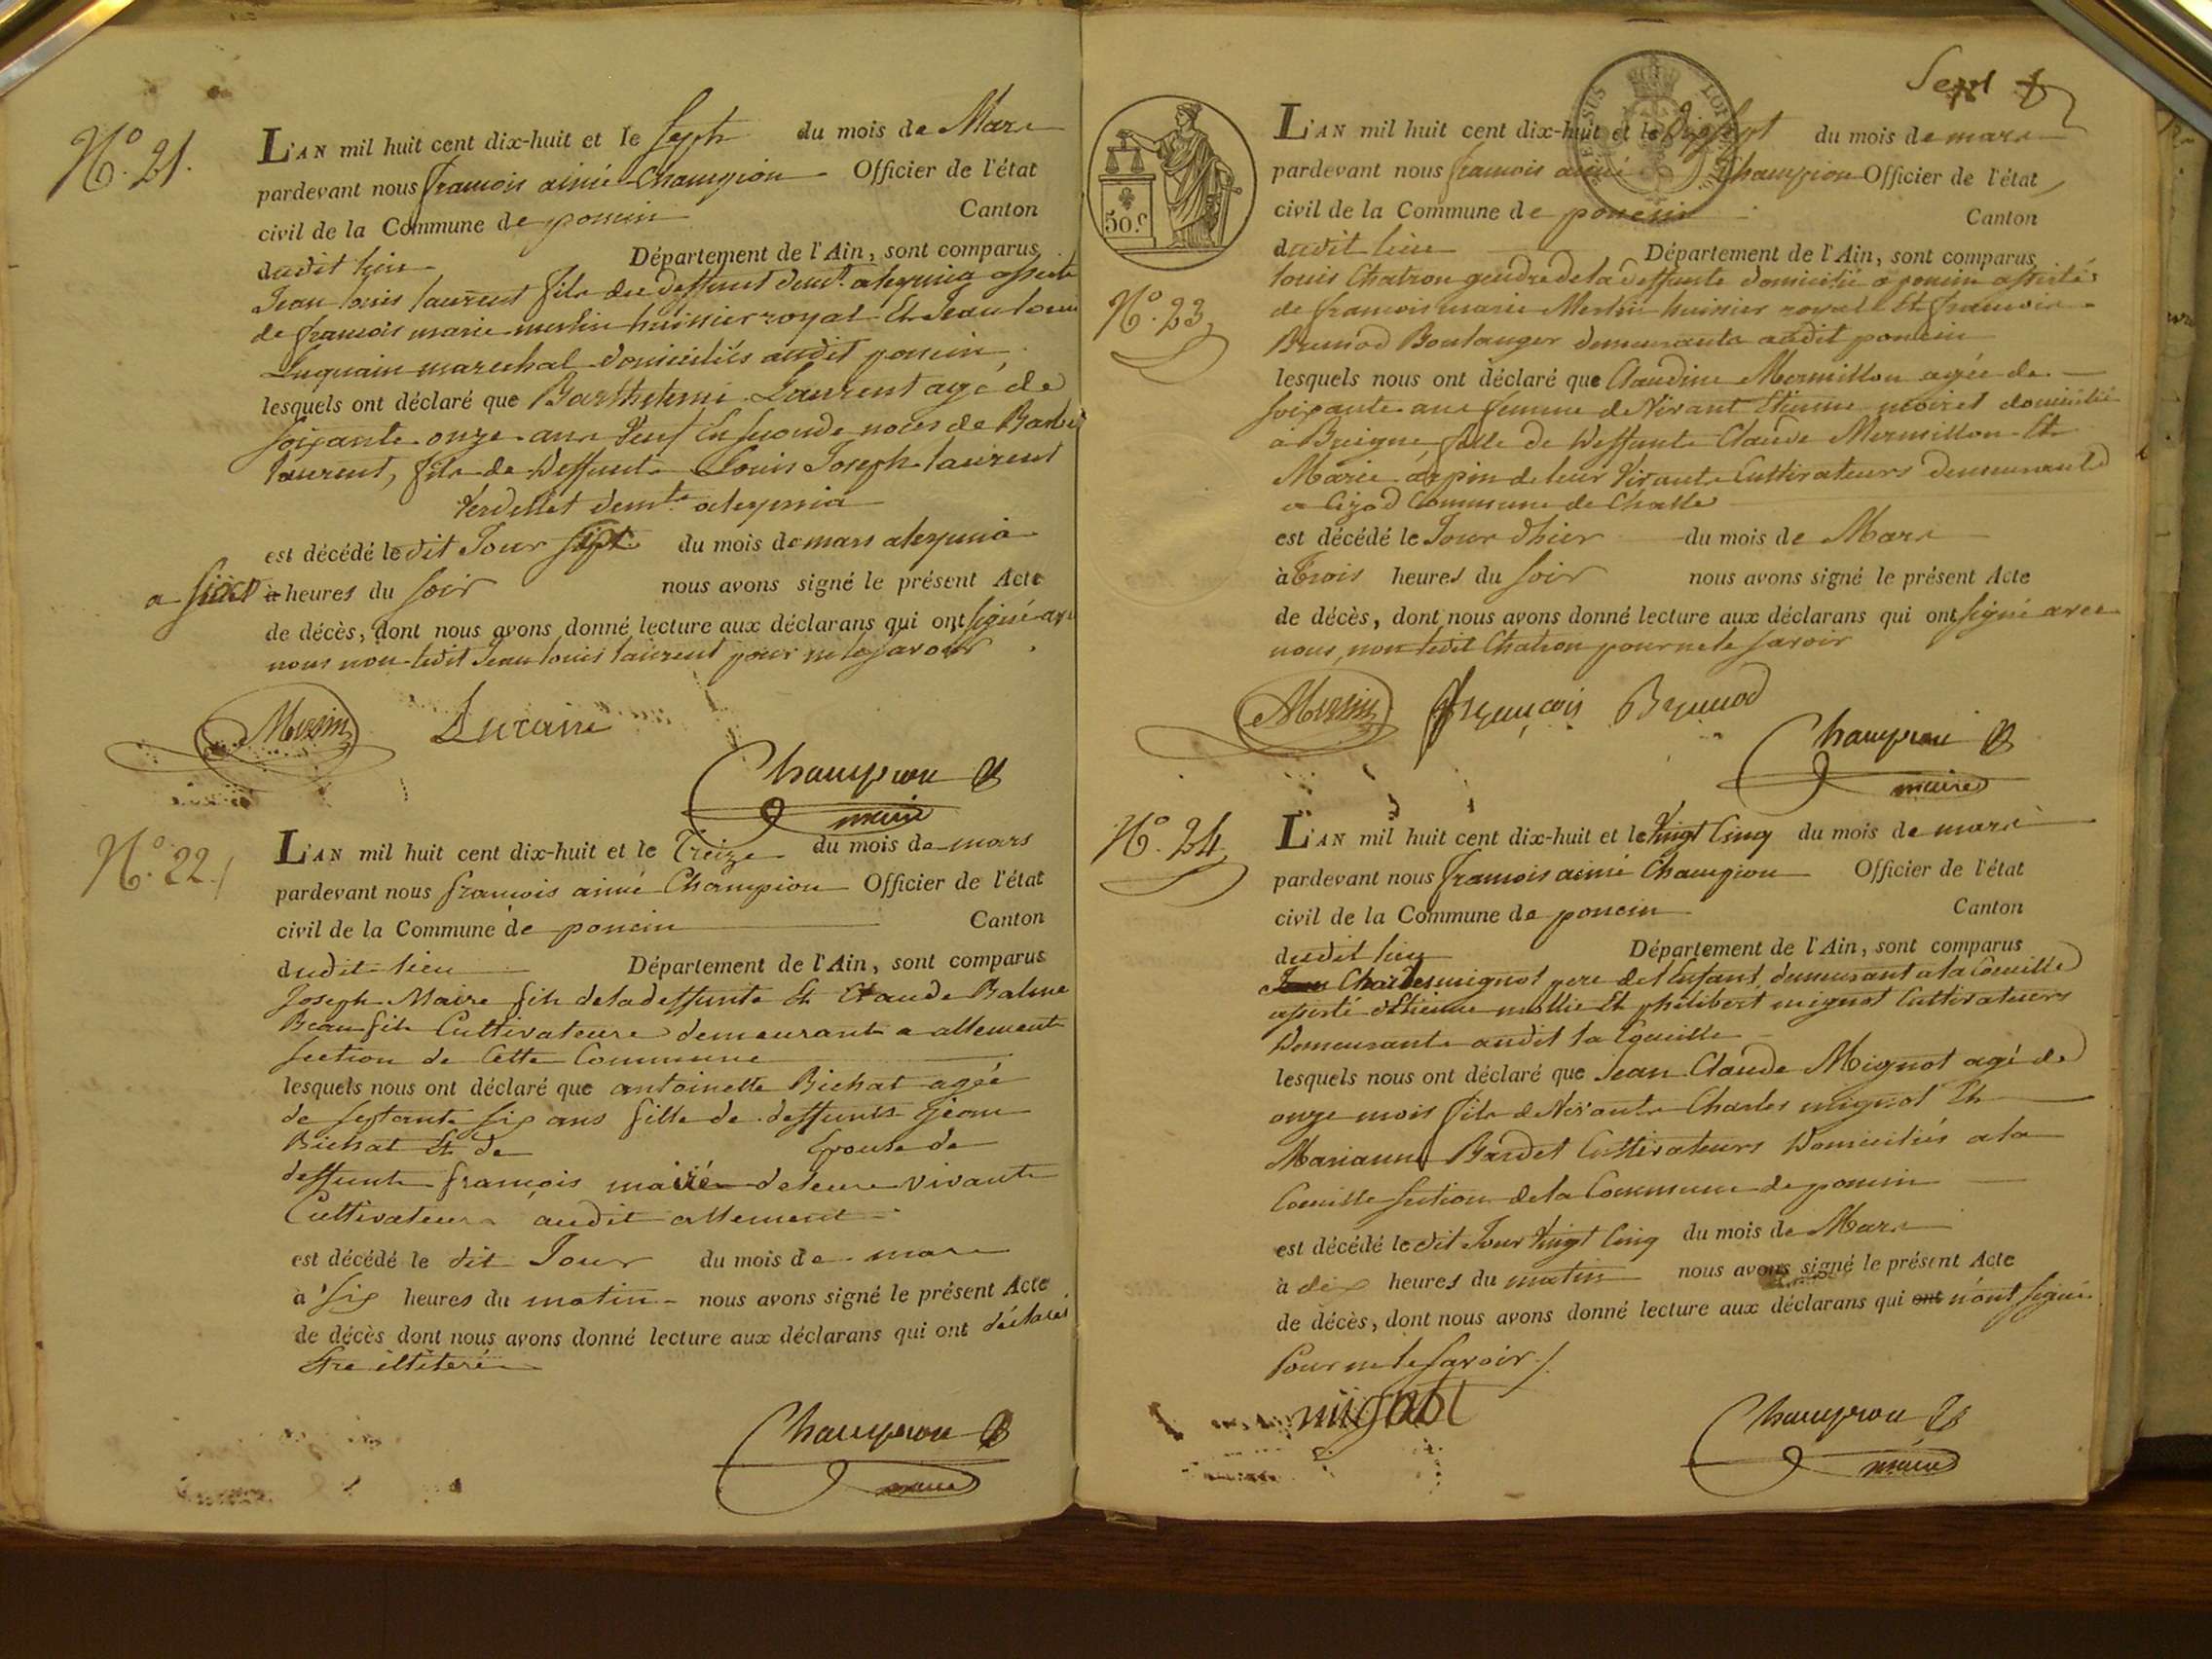 N.o 21.
L'AN mil huit cent dix-huit et le Sept du mois de Mars
pardevant nous françois aimé Champion Officier de l'état
civil de la Commune de poncin Canton
dudit lieu Département de l'Ain, sont comparus
Jean louis laurent fils du deffunt demt. a leymia assisté
de françois marie merlin huissier royal Et Jean louis
marechal domiciliés audit poncin
lesquels ont déclaré que Barthelemi Laurent agé de
soixante onze ans veuf En seconde noces de
laurent, fils de Deffunts Louis Joseph laurent
Verdellet demts. a leymia
est décédé le dit Jour Sept du mois de mars a leymia
a six à heures du soir nous avons signé le présent Acte
de décès, dont nous avons donné lecture aux déclarans qui ont signé avec
nous non ledit Jean louis laurent pour ne le savoir
Merlin
Champion
maire
N.o 22
L'AN mil huit cent dix-huit et le Treize du mois de mars
pardevant nous françois aimé Champion Officier de l'état
civil de la Commune de poncin Canton
dudit lieu Département de l'Ain, sont comparus
Joseph Maire fils de la deffunte Et Claude Balme
Beau fils Cultivateurs demeurants a allement
section de Cette Commune
lesquels nous ont déclaré que antoinette Bichat agée
de septante six ans fille de deffunts Jean
Bichat Et de Epouse de
deffunt françois maire de leurs vivants
Cultivateurs audit allement
est décédé le dit Jour du mois de mars
à six heures du matin nous avons signé le présent Acte
de décès dont nous avons donné lecture aux déclarans qui ont déclarés
Etre illiterés
Champion
maire
Sept
50.c
L'AN mil huit cent dix-huit et le Dix sept du mois de mars
pardevant nous francois aimé Champion Officier de l'état
civil de la Commune de poncin Canton
dudit lieu Département de l'Ain, sont comparus
N.o 23
louis Chatron gendre de la deffunte domicilié a poncin assisté
de francois marie Merlin huissier royal Et francois
Brunod Boulanger demeurants audit poncin
lesquels nous ont déclaré que Claudine Mermillon agée de
soixante ans femme de Vivant Etienne moiret domicilié
à fille de Deffunts Claude Mermillon Et
Marie arpin de leur Vivants Cultivateurs demeurants
a Cizod Commune de Challe
est décédé le Jour d'hier du mois de Mars
à Trois heures du soir nous avons signé le présent Acte
de décès, dont nous avons donné lecture aux déclarans qui ont signé avec
nous, non ledit Chatron pour ne le savoir
Merlin françois Brunod
Champion
maire
N.o 24
L'AN mil huit cent dix-huit et le Vingt Cinq du mois de mars
pardevant nous francois aimé Champion Officier de l'état
civil de la Commune de poncin Canton
dudit lieu Département de l'Ain, sont comparus
Jean Charles mignot pere de l'Enfant, demeurant a la Coeuille
assisté d'Etienne mollie Et philibert mignot Cultivateurs
Demeurants audit la Coeuille
lesquels nous ont déclaré que Jean Claude Mignot agé de
onze mois fils de Vivants Charles mignot Et
Marianne Bardet Cultivateurs Domiciliés a la
Coeuille section de la Commune de poncin
est décédé le dit Jour Vingt Cinq du mois de Mars
à dix heures du matin nous avons signé le présent Acte
de décès, dont nous avons donné lecture aux déclarans qui ont n'ont signé
Pour ne le savoir
mignot
Champion
maire